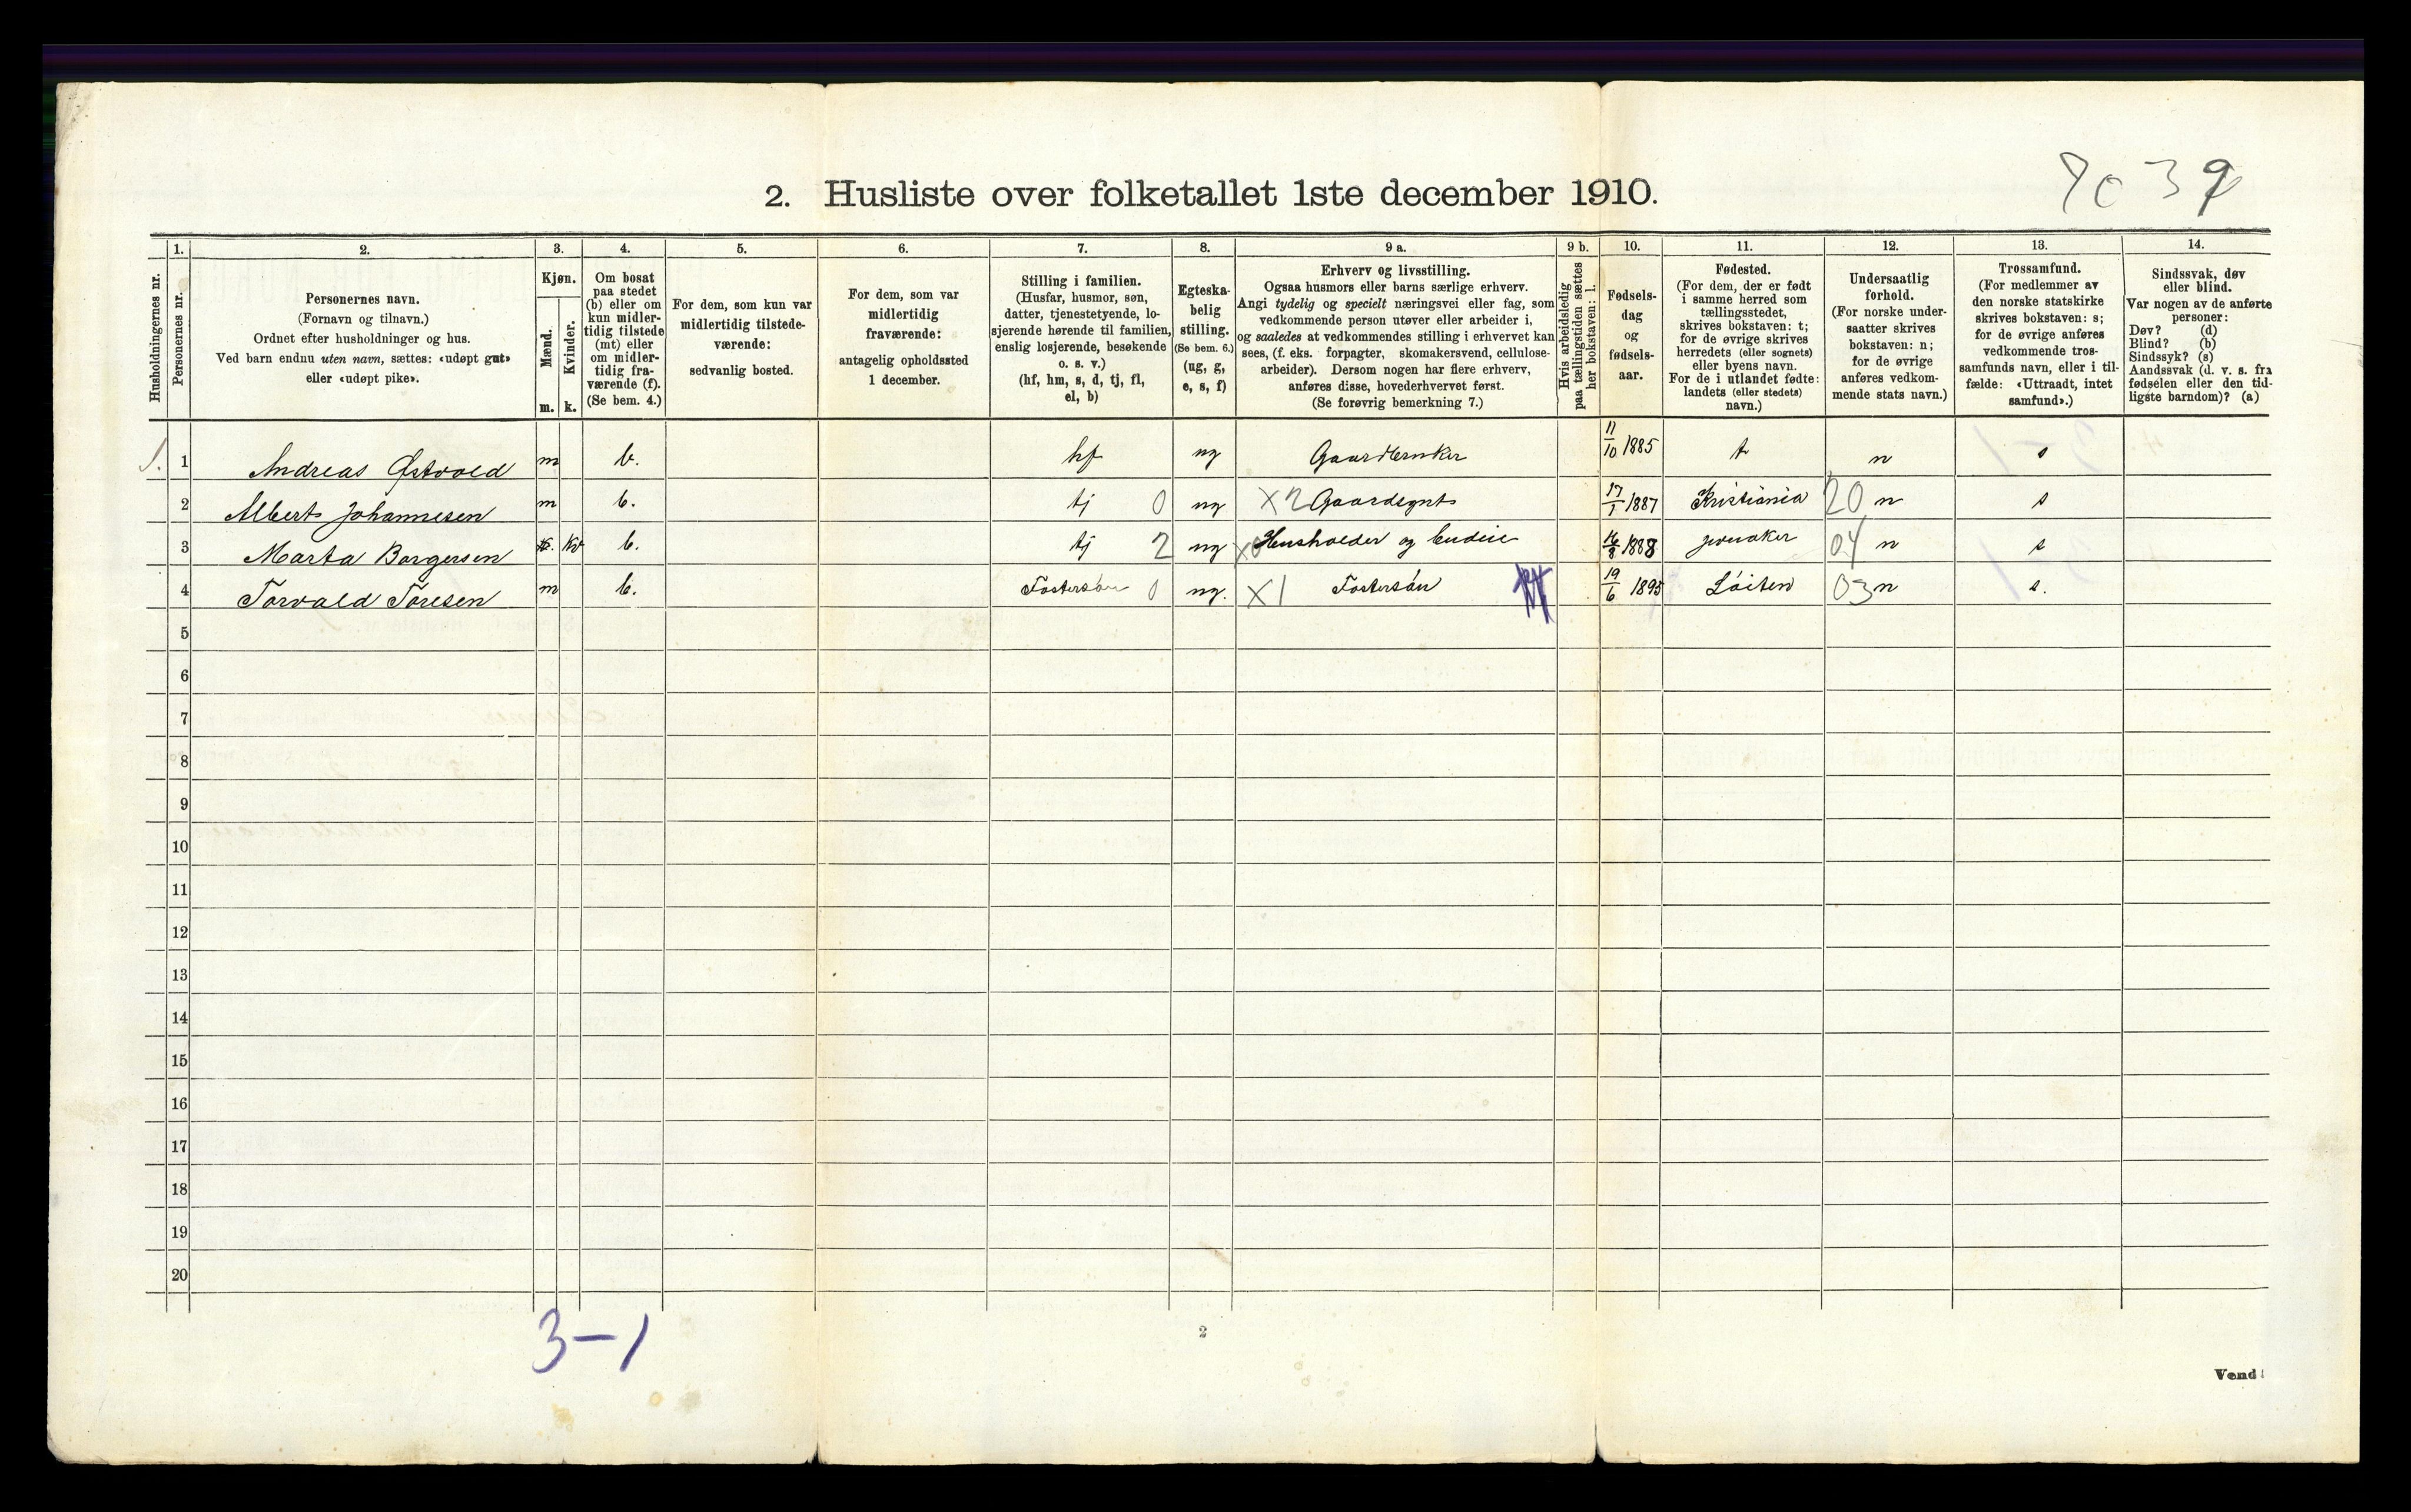 2. Husliste over folketallet 1ste december 1910.
Husholdningernes nr.
1.
Personernes nr.
2.
Personernes navn.
(Fornavn og tilnavn.)
Ordnet efter husholdninger og hus.
Ved barn endnu uten navn, sættes: «udøpt gut»
eller «udøpt pike».
3.
Kjøn.
Mænd.
Kvinder.
m. k.
4.
Om bosat
paa stedet
(b) eller om
kun midler-
tidig tilstede
(mt) eller
om midler-
tidig fra-
værende (f).
(Se bem. 4.)
5.
For dem, som kun var
midlertidig tilstede-
værende:
sedvanlig bosted.
6.
For dem, som var
midlertidig
fraværende:
antagelig opholdssted
1 december.
7.
Stilling i familien.
(Husfar, husmor, søn,
datter, tjenestetyende, lo-
sjerende hørende til familien,
enslig losjerende, besøkende
o. s. v.)
(hf, hm, s, d, tj, fl,
el, b)
8.
Egteska-
belig
stilling.
(Se bem. 6.)
(ug, g,
e, s, f)
9 a.
Erhverv og livsstilling.
Ogsaa husmors eller barns særlige erhverv.
Angi tydelig og specielt næringsvei eller fag, som
vedkommende person utøver eller arbeider i,
og saaledes at vedkommendes stilling i erhvervet kan
sees, (f. eks. forpagter, skomakersvend, cellulose-
arbeider). Dersom nogen har flere erhverv,
anføres disse, hovederhvervet først.
(Se forøvrig bemerkning 7.)
9 b.
Hvis arbeidsledig
paa tællingstiden sættes
her bokstaven: l.
10.
Fødsels-
dag
og
fødsels-
aar.
11.
Fødested.
(For dem, der er født
i samme herred som
tællingsstedet,
skrives bokstaven: t;
for de øvrige skrives
herredets (eller sognets)
eller byens navn.
For de i utlandet fødte:
landets (eller stedets)
navn.)
12.
Undersaatlig
forhold.
(For norske under-
saatter skrives
bokstaven: n;
for de øvrige
anføres vedkom-
mende stats navn.)
13.
Trossamfund.
(For medlemmer av
den norske statskirke
skrives bokstaven: s;
for de øvrige anføres
vedkommende tros-
samfunds navn, eller i til-
fælde: «Uttraadt, intet
samfund».)
14.
Sindssvak, døv
eller blind.
Var nogen av de anførte
personer:
Døv? (d)
Blind? (b)
Sindssyk? (s)
Aandssvak (d. v. s. fra
fødselen eller den tid-
ligste barndom)? (a)
1. 1 Andreas Østvold m b. hf ug Gaardbruker 11/10 1885 t n s
2 Albert Johannesen m b. tj 0 ug X2 Gaardsgut 17/1 1887 Kristiania 20 n s
3 Marta Borgersen kv b. tj 2 ug Husholder og budeie 16/8 1888 Jevnaker 04 n s
4 Torvald Toresen m b. Fostersön 0 ug. X1 Fostersön 19/6 1895 Löiten 03 n s.
5
6
7
8
9
10
11
12
13
14
15
16
17
18
19
20
3-1
2
Vend!